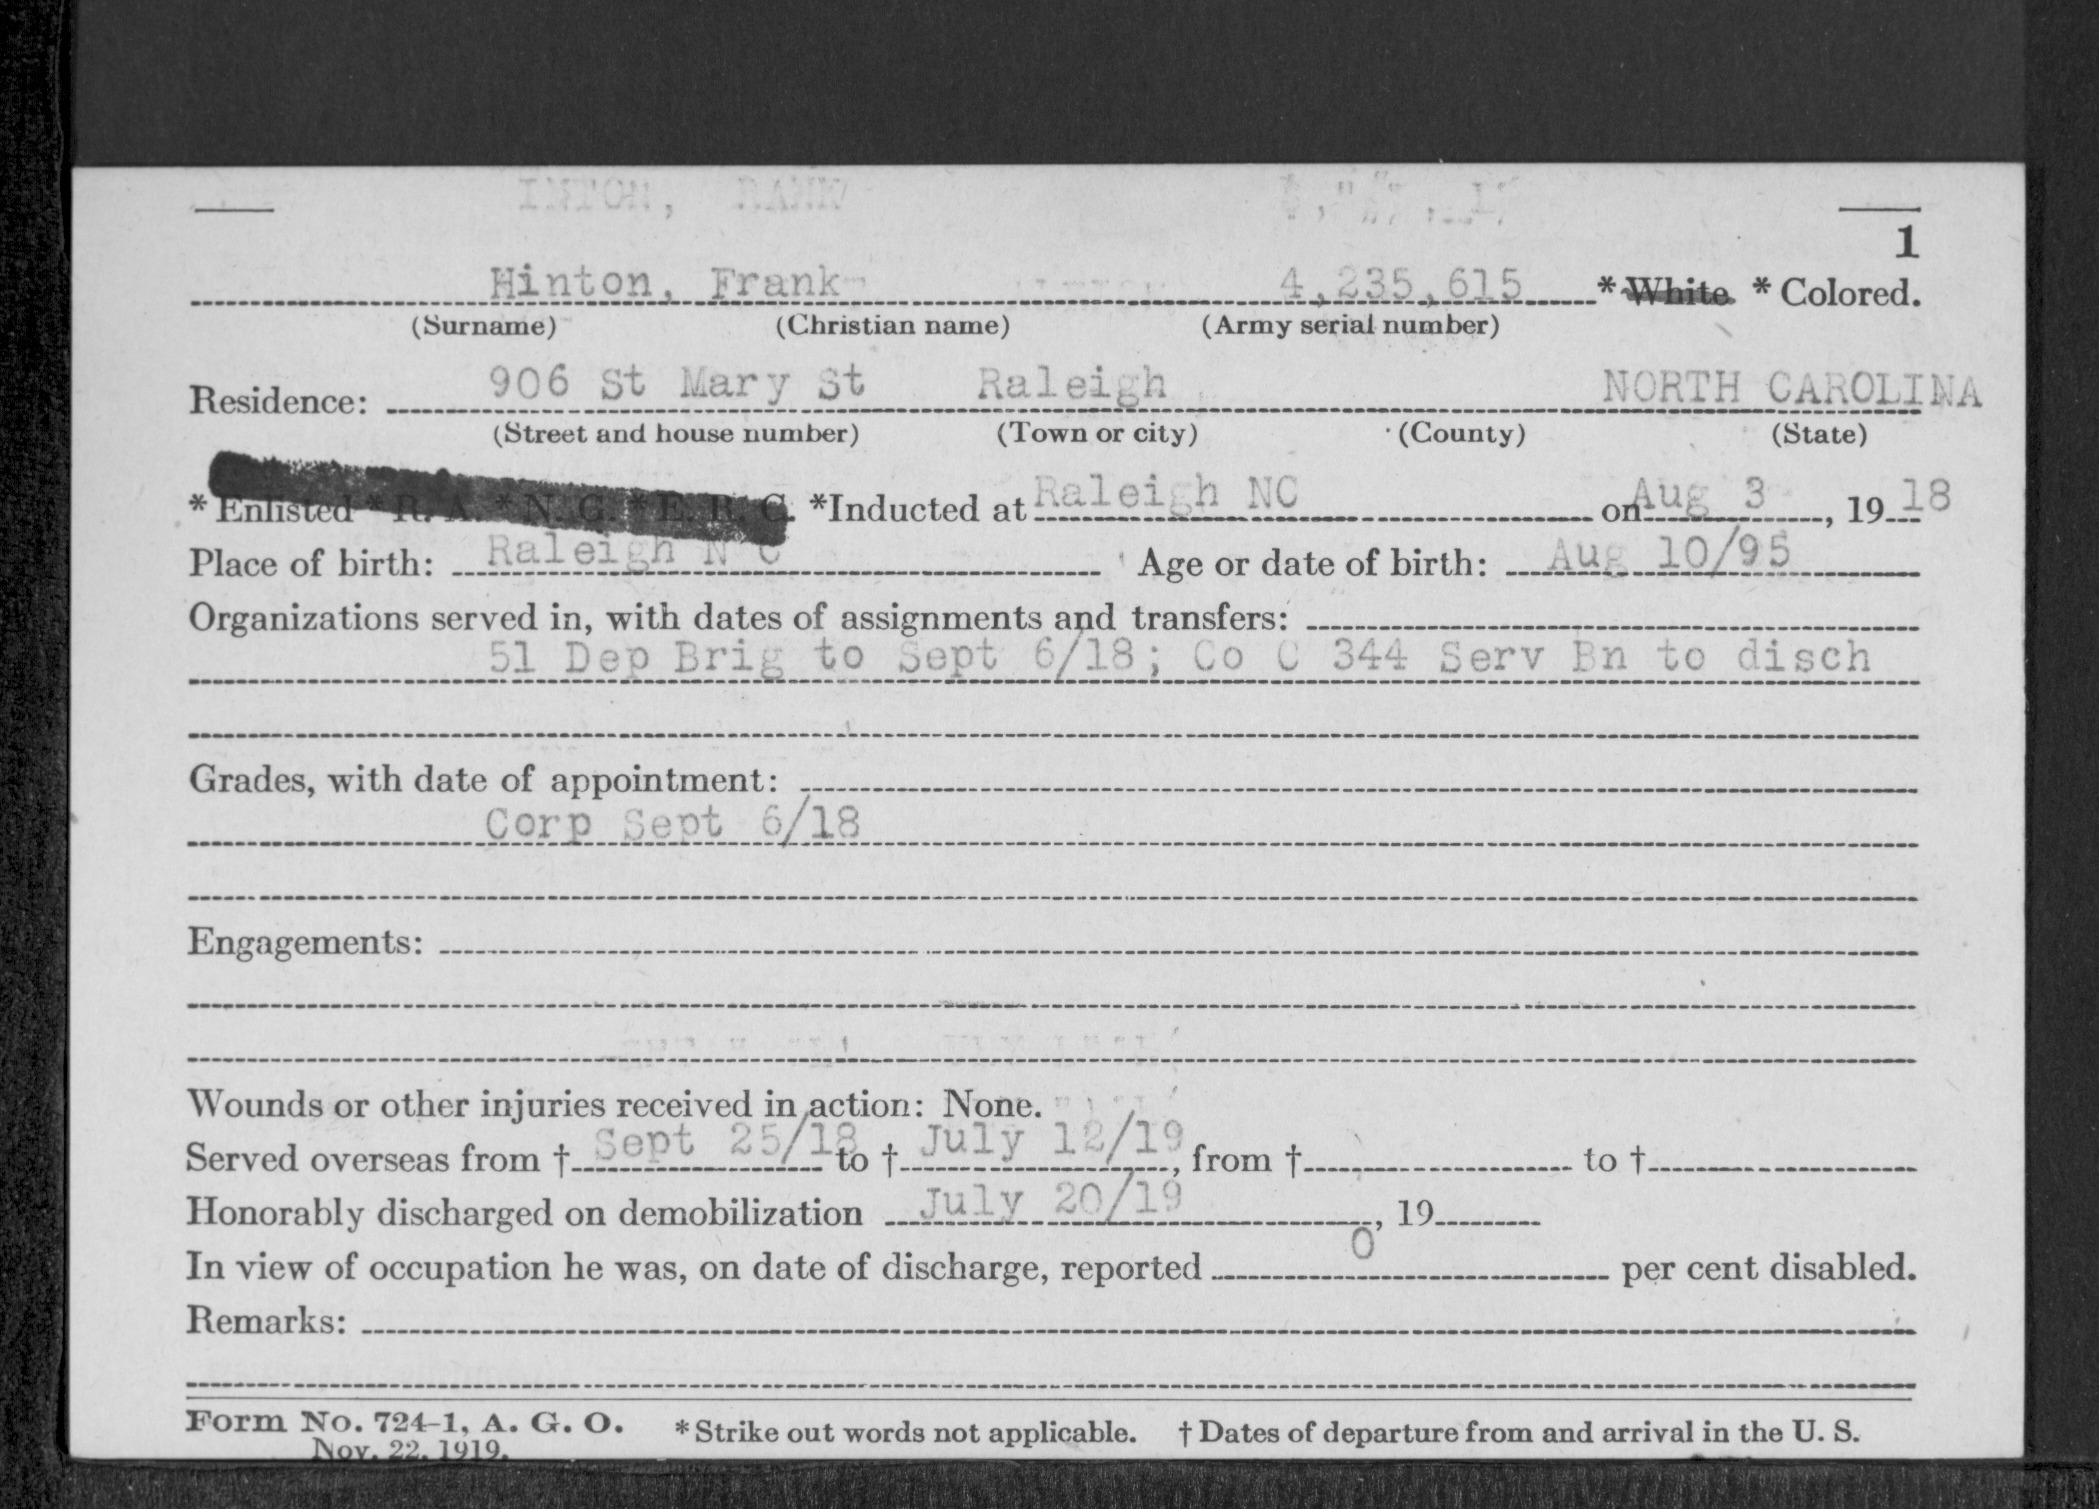 1
Hinton, Frank 4,235,615 * White * Colored.
(Surname) (Christian name) (Army serial number)
906 St Mary St Raleigh NORTH CAROLINA
Residence:
(Street and house number) (Town or city) (County) (State)
* Enlisted * R. A. * N. G. * E. R. C. *Inducted at Raleigh NC on Aug 3, 19 18
Place of birth: Raleigh N C Age or date of birth: Aug 10/95
Organizations served in, with dates of assignments and transfers:
51 Dep Brig to Sept 6/18; Co C 344 Serv Bn to disch
Grades, with date of appointment:
Corp Sept 6/18
Engagements:
Wounds or other injuries received in action: None.
Served overseas from † Sept 25/18 to † July 12/19, from † to †
Honorably discharged on demobilization July 20/19, 19
In view of occupation he was, on date of discharge, reported 0 per cent disabled.
Remarks:
Form No. 724-1, A. G. O. * Strike out words not applicable. † Dates of departure from and arrival in the U. S.
Nov. 22, 1919.